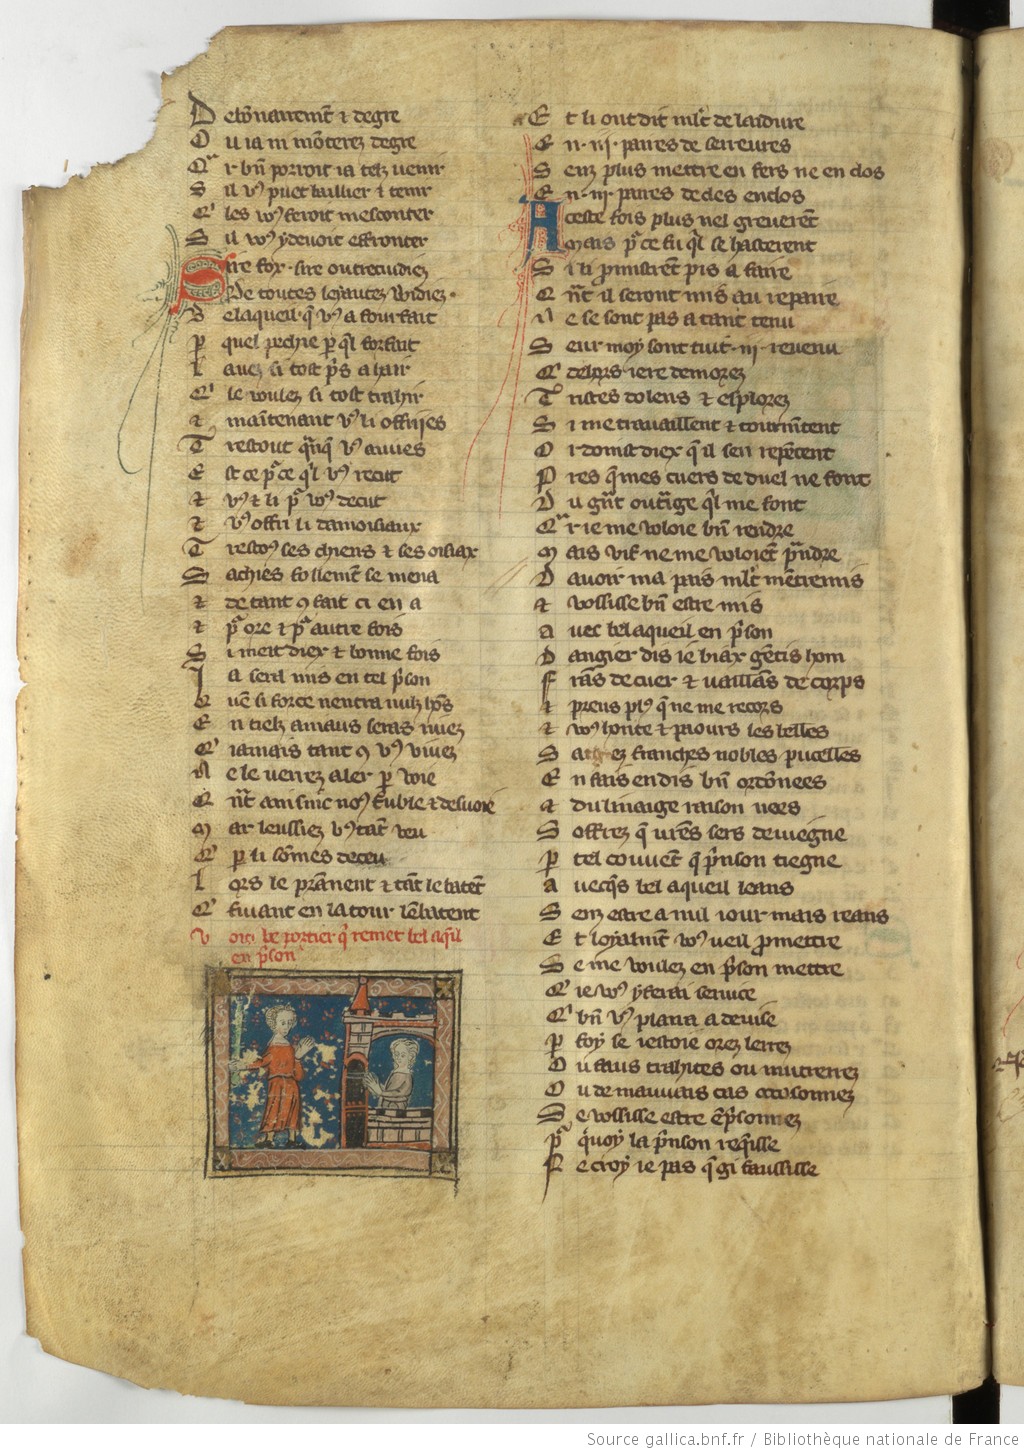 Debonnairemēt ⁊ de gre
Ou ia ni mōterez de gre
Qar bn̄ porroit ia telz venir
Sil vꝰ puet baillier ⁊ tenir
Qles vꝰ feroit mesconter
Sil voꝰ ꝯdevoit effronter
Sire fox · sire outrecuidiez
De toutes loyautez widiez ·
Belaqueil q̄ vꝰ a fourfait
Ꝑ quel pechie ꝑ q̄l forfait
Lavez si tost p̄s a hair
Q̉ le voulez si tost trahir
⁊ maītenant vꝰ li offriies
Trestout q̄nq̄ vꝰ aviies
Est ce p̄ ce q̄l vꝰ recut
⁊ vꝰ ⁊ li p̄ voꝰ decut
⁊ vꝰ offri li damoisiaux
Trestoꝰ ses chiens ⁊ ses oisiax
Sachies follemēt se mena
⁊ de tant ꝯ fait ci en a
⁊ p̄ ore ⁊ p̄ autre fois
Si meit diex ⁊ bonne fois
Ja sera mis en tel p̄son
Quē si force nentra nulz hōs
En tielz aniaus seras rivez
Q̉ iamais tant ꝯ vꝰ vivez
Ne le verrez aler ꝑ voie
Qn̄t ainsinc noꝰ t̄uble ⁊ desvoie
Mar leussiez vꝰ tāt veu
Q̉ ꝑ li sōmes deceu
Lors le prānent ⁊ tāt le batent
Q̉ fuiant en la tour lēbatent
Voici le portier q̉ remet bel aq̄il
en p̄son
Et li ont dit ml̄t de laidure
En · iij · paires de serreures
Senz plus mettre en fers ne en clos
En · iij · paires de des enclos
A ceste fois plus nel greverēt
Mais p̄ ce fu q̄l se hasterent
Si li p̄mistrēt pis a faire
Qn̄t il seront mis au repaire
Ne se sont pas a tant tenu
Seur moy sont tuit · iij · revenu
Q̉ dehors iere demorez
Tristes dolens ⁊ esplorez
Si me travaillent ⁊ tourmētent
Or doinst diex q̄ il sen repētent
Pres q̄ mes cuers de duel ne font
Du gn̄t outrage q̄l me font
Qar ie me voloie bn̄ rendre
Mais vif ne me voloiēt p̄ndre
Davoir ma pais ml̄t mētremis
⁊ vossisse bn̄ estre mis
Avec bel aqueil en p̄son
Dangier dis ie biax gētis hom
Frās de cuer ⁊ vaillās de corps
⁊ preus plꝰ q̄ ne me recors
⁊ voꝰ honte ⁊ paours les belles
Sages franches nobles pucelles
En fais en dis bn̄ ordōnees
⁊ du linaige raison nees
Soffrez q̄ vr̄es sers deviegne
Ꝑ tel couvēt q̄ p̄nson tiegne
Avecq̄s bel aqueil leans
Senz estre a nul iour mais reans
Et loyalmēt voꝰ veil ꝓmettre
Se me voulez en p̄son mettre
Q̉ ie voꝰ ꝯ ferai service
Q̉ bn̄ vꝰ plaira a devise
Ꝑ foy se iestoie orez lerres
Ou faus trahites ou murtrerez
Ou de mauvais cas occoisonnez
Se vossisse estre ēp̄sonnez
P̄ quoy la p̄nson req̄isse
Ne croy ie pas q̄ gi faussisse
Source gallica.bnf.fr / Bibliothèque nationale de France